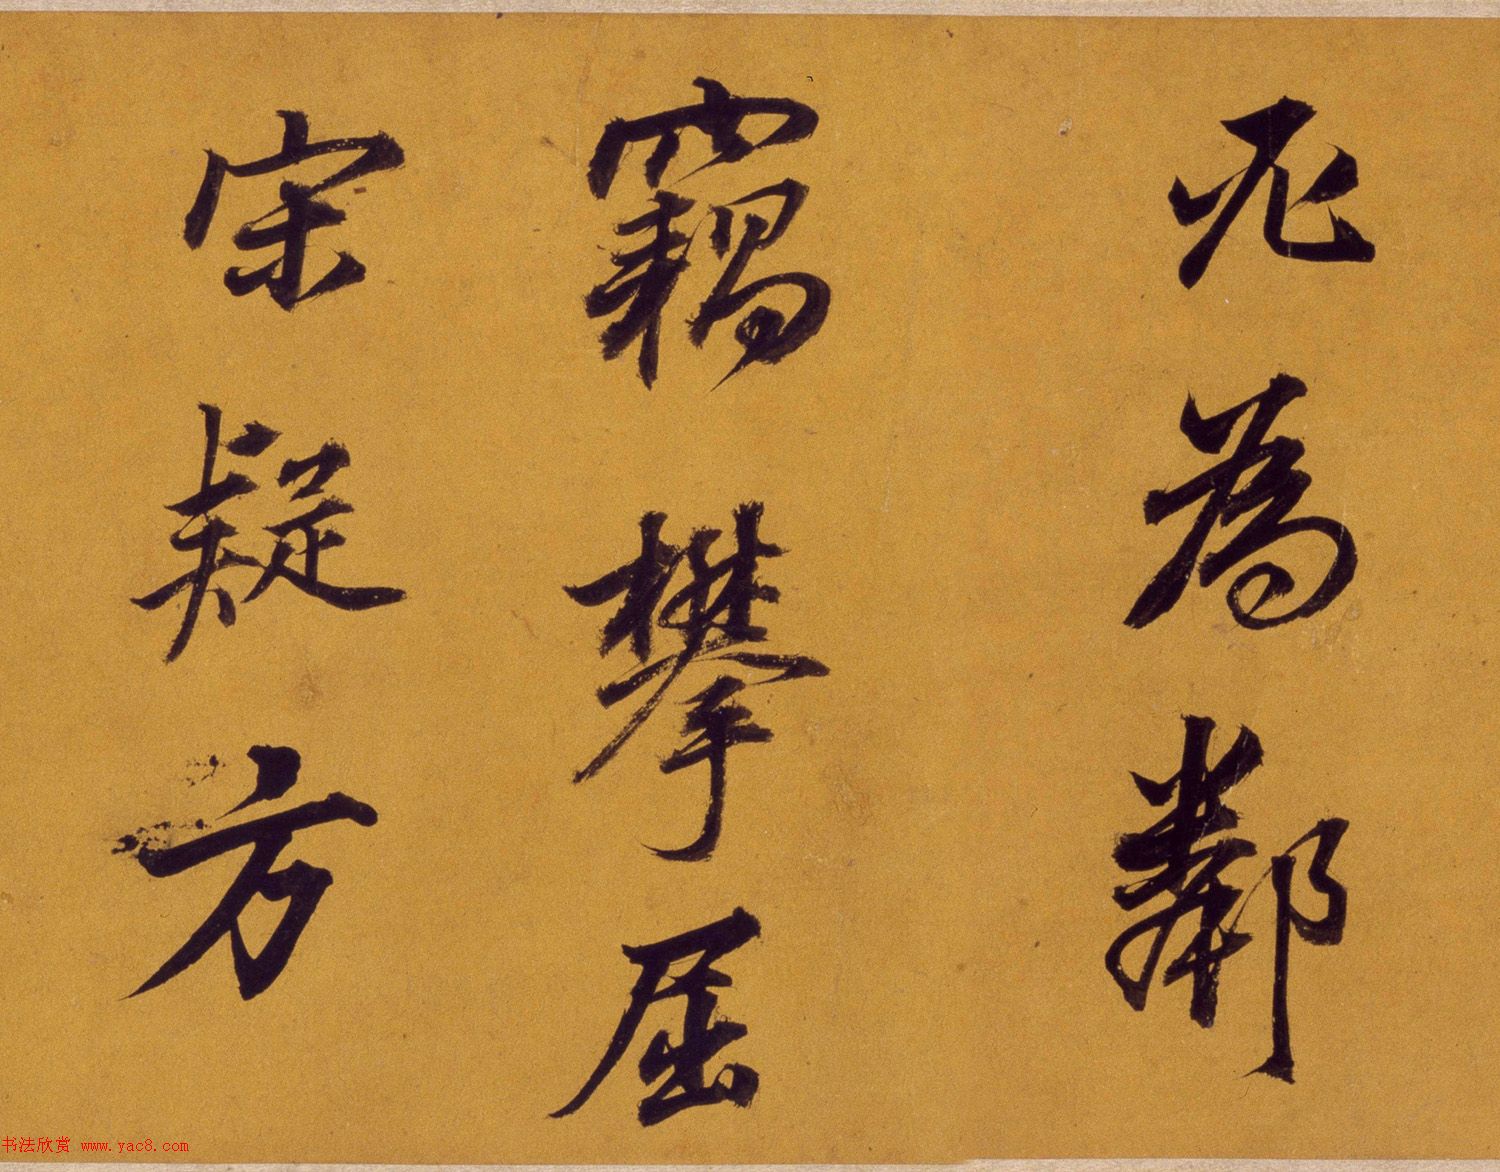 必為鄰
竊攀屈
宋疑方
书法欣赏 www.yac8.com